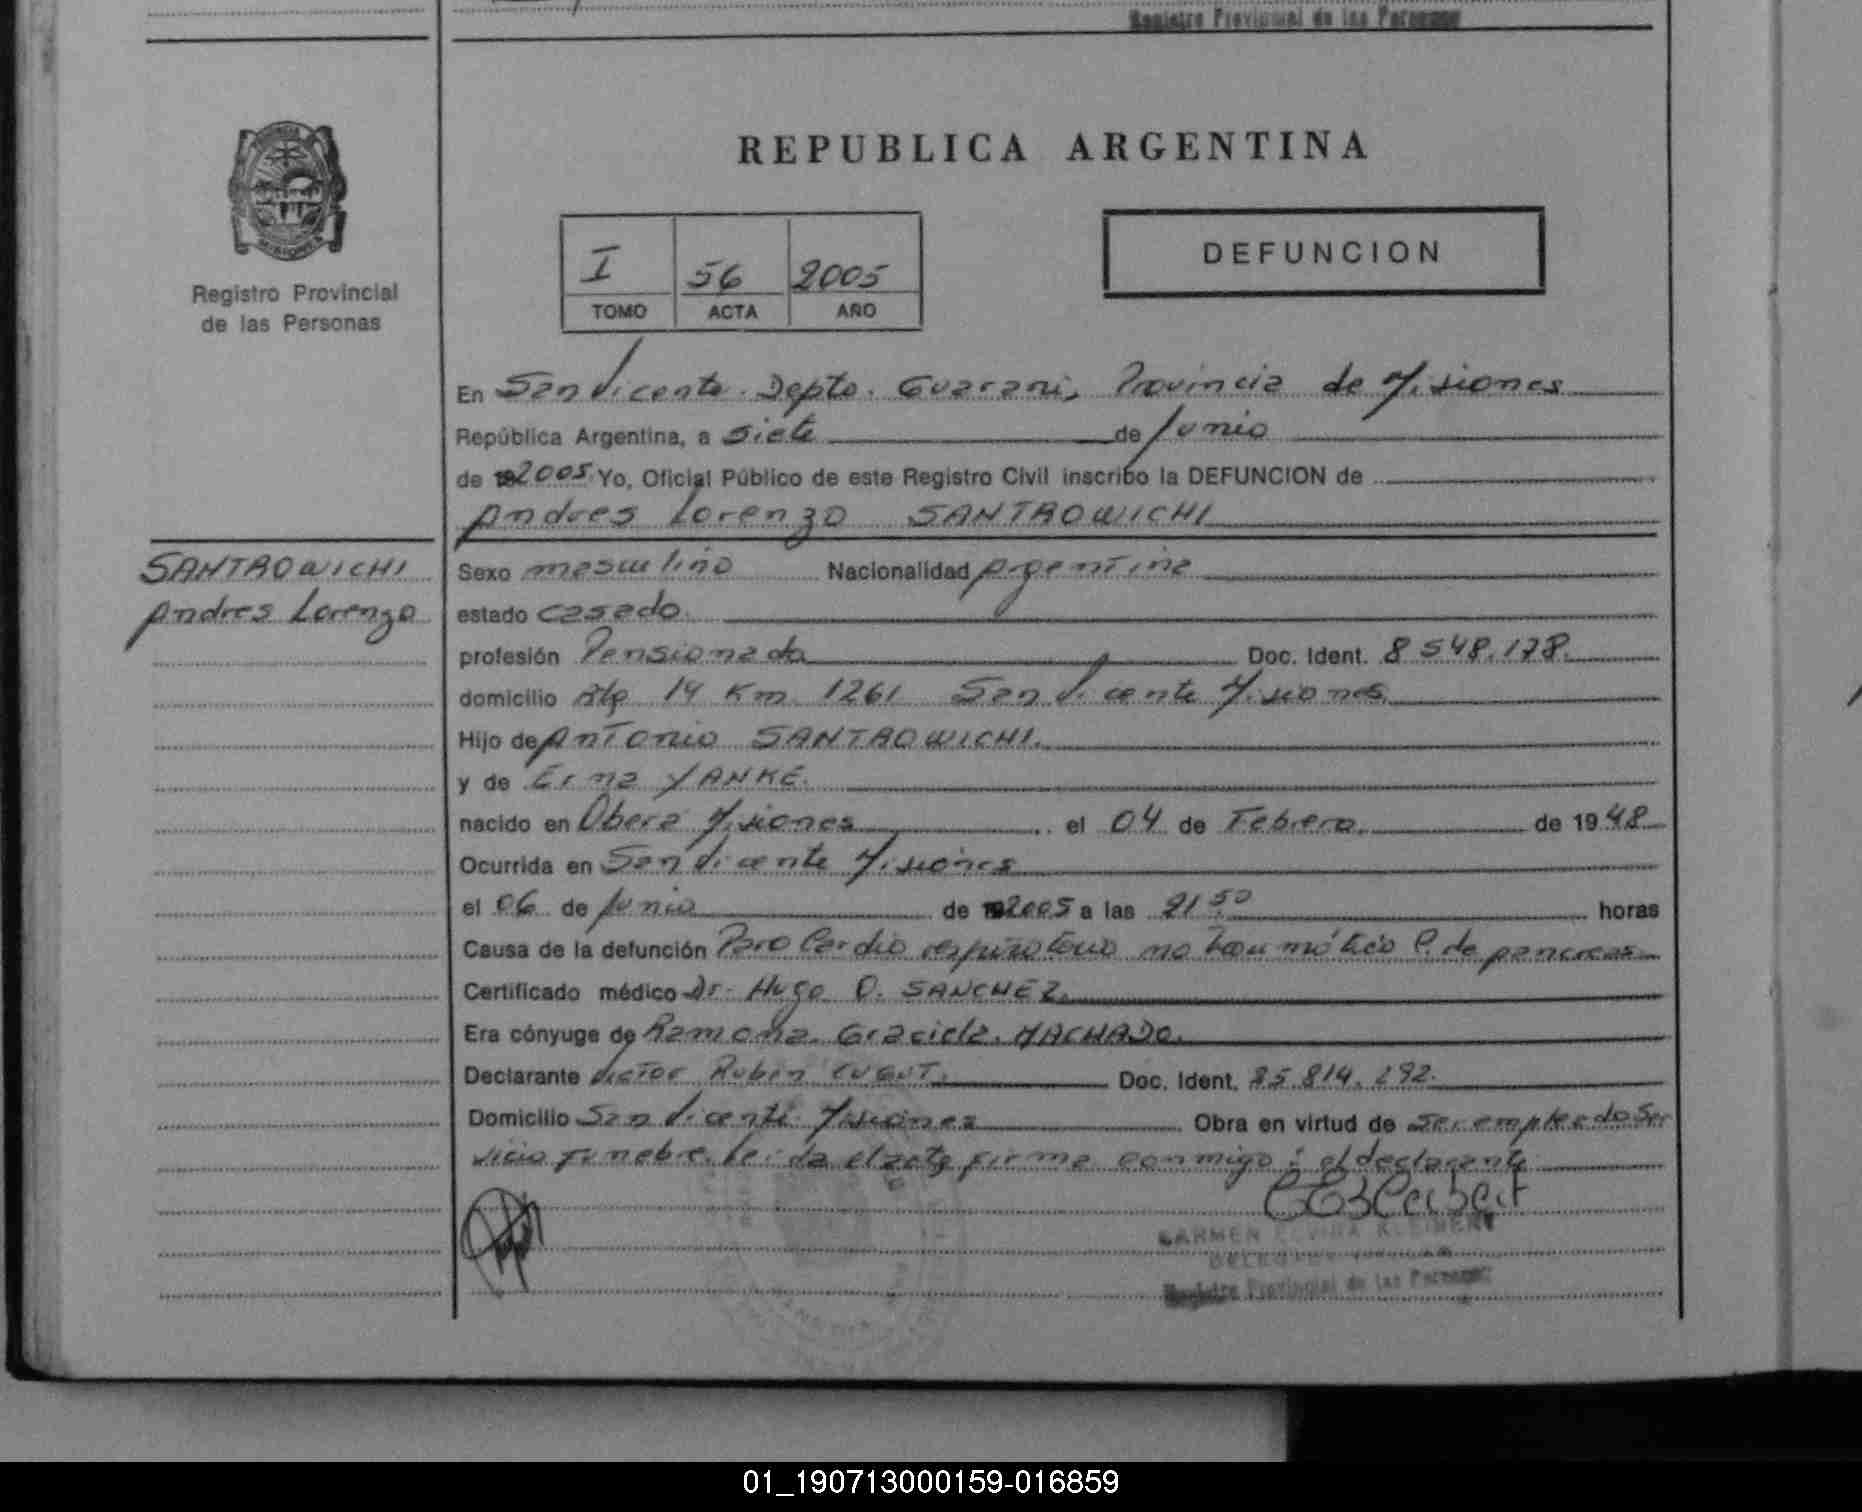 Registro Provincial de las Personas
REPUBLICA ARGENTINA
Registro Provincial
de las Personas
I 56 2005
TOMO ACTA AÑO
DEFUNCION
En San Vicente. Depto. Guarani, Provincia de Misiones
República Argentina, a siete de Junio
de 2005 Yo, Oficial Público de este Registro Civil inscribo la DEFUNCION de
Andres Lorenzo SANTROWICHI
SANTROWICHI
Andres Lorenzo
Sexo masculino Nacionalidad Argentina
estado casado.
profesión Pensionado Doc. Ident. 8548.178.
domicilio Rta 14 Km 1261 San Vicente Misiones.
Hijo de Antonio SANTROWICHI.
y de Erna YANKE.
nacido en Obera Misiones el 04 de Febrero de 1948
Ocurrida en San Vicente Misiones
el 06 de Junio de 2005 a las 21:50 horas
Causa de la defunción Paro Cardio respiratorio no traumático C. de pancreas
Certificado médico Dr. Hugo O. SANCHEZ.
Era cónyuge de Ramona. Graciela. MACHADO.
Declarante Victor Rubén Doc. Ident.
Domicilio San Vicente Misiones Obra en virtud de ser empleado Ser
vicio Funebre. Leida el acta firma conmigo: el declarante
CARMEN ELVIRA KLEINERT
Registro Provincial de las Personas
01_190713000159-016859